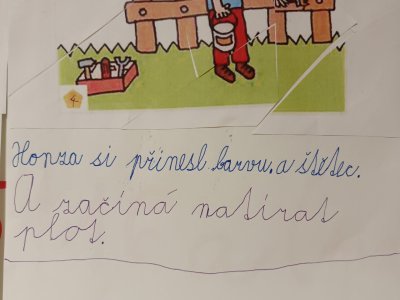 4
Honza si přinesl barvu. a štětec.
A začíná natírat
plot.